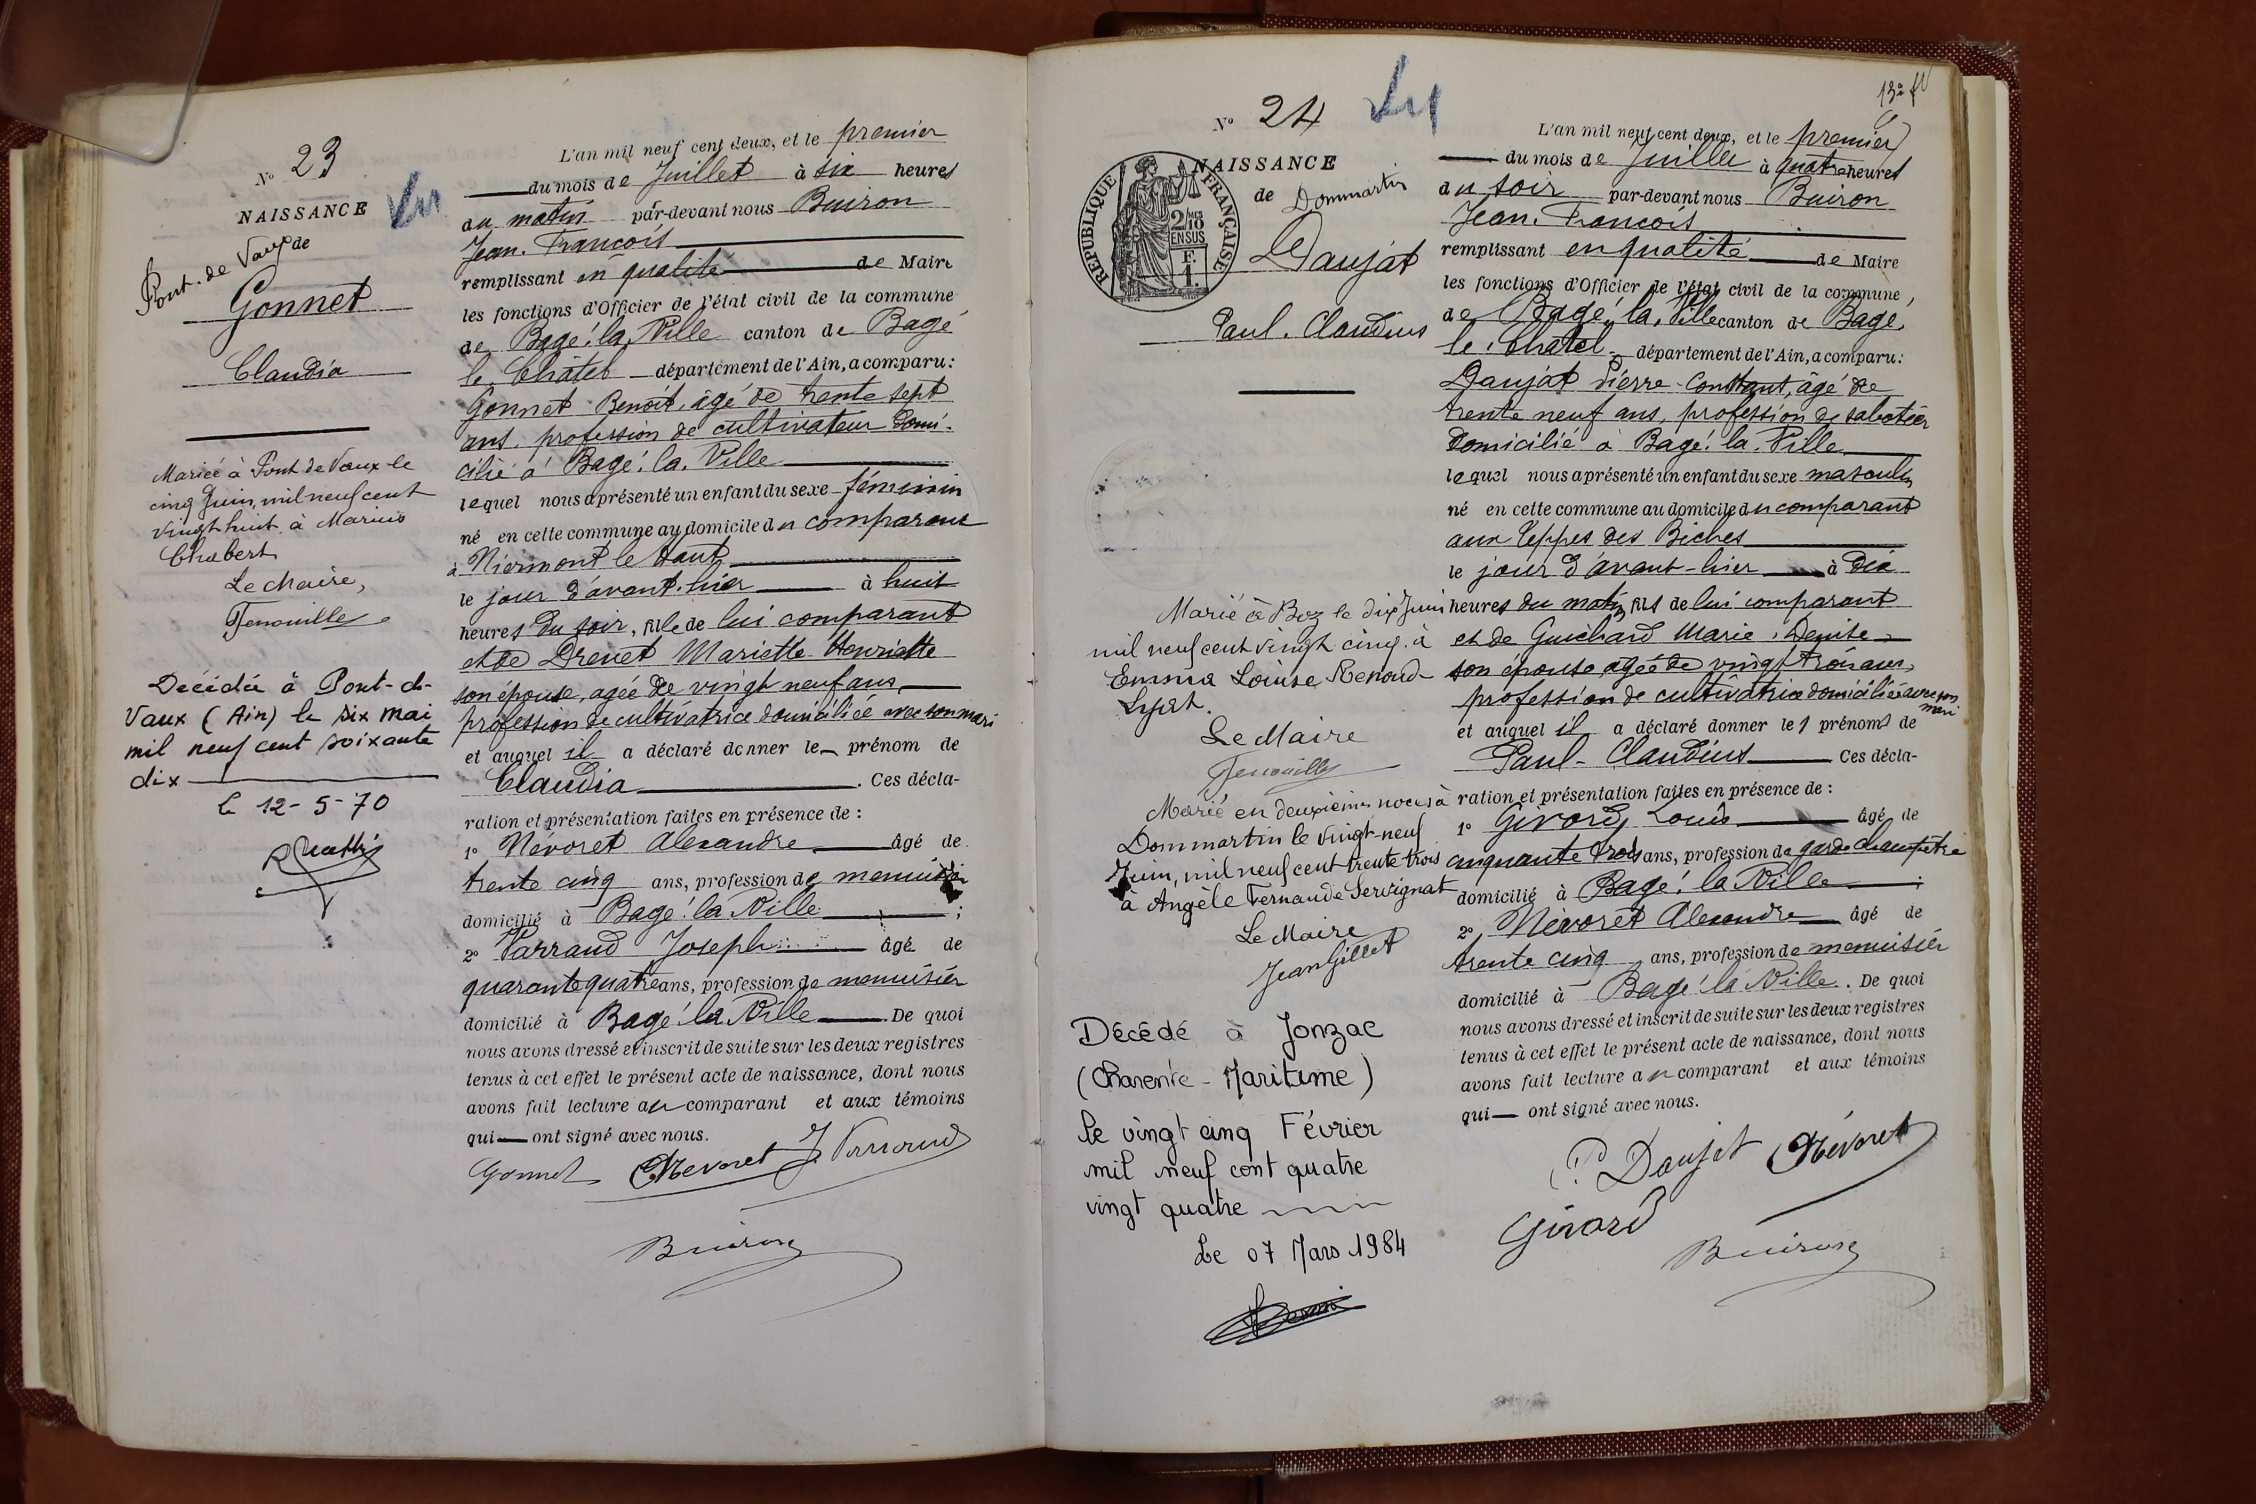 N° 23
Vu
NAISSANCE
de
Pont-de-Vaux
Gonnet
Claudia
Mariée à Pont de Vaux le
cinq Juin, mil neuf cent
vingt huit à Marius
Chabert
Le Maire,
Fenouillet
Décédée à Pont-de-
Vaux (Ain) le six mai
mil neuf cent soixante
dix
le 12-5-70
L'an mil neuf cent deux, et le premier
du mois de Juillet à six heures
du matin par-devant nous Buiron
Jean-François
remplissant en qualité de Maire
les fonctions d'Officier de l'état civil de la commune
de Bagé-la-Ville canton de Bagé
le Châtel département de l'Ain, a comparu :
Gonnet Benoît, âgé de trente sept
ans, profession de cultivateur domi-
cilié à Bagé-la-Ville
lequel nous a présenté un enfant du sexe féminin
né en cette commune au domicile du comparant
à Niermont le Haut
le jour d'avant-hier à huit
heures du soir, fille de lui comparant
et de Drevet Mariette Henriette
son épouse, agée de vingt neuf ans,
profession de cultivatrice domiciliée avec son mari
et auquel il a déclaré donner le prénom de
Claudia. Ces décla-
ration et présentation faites en présence de :
1° Névoret Alexandre âgé de
trente cinq ans, profession de menuisier
domicilié à Bagé-la-Ville ;
2° Varraud Joseph âgé de
quarante quatre ans, profession de menuisier
domicilié à Bagé-la-Ville. De quoi
nous avons dressé et inscrit de suite sur les deux registres
tenus à cet effet le présent acte de naissance, dont nous
avons fait lecture au comparant et aux témoins
qui ont signé avec nous.
Gonnet Névoret J. Varraud
Buiron
13e ft
N° 24
Vu
NAISSANCE
de Dommartin
REPUBLIQUE FRANÇAISE
2/10 MES
EN SUS
F.
1.
Daujat
Paul-Claudius
Marié à Boz le dix Juin
mil neuf cent vingt cinq à
Emma Louise Renoud-
Lyat.
Le Maire
Fenouillet
Marié en deuxièmes noces à
Dommartin le vingt-neuf
Juin, mil neuf cent trente trois
à Angèle Fernande Servignat
Le Maire
Jean Gillet
Décédé à Jonzac
(Charente-Maritime)
le vingt cinq Février
mil neuf cent quatre
vingt quatre
Le 07 Mars 1984
L'an mil neuf cent deux, et le premier
du mois de Juillet à quatre heures
du soir par-devant nous Buiron
Jean-François
remplissant en qualité de Maire
les fonctions d'Officier de l'état civil de la commune
de Bagé-la-Ville canton de Bagé
le Châtel département de l'Ain, a comparu :
Daujat Pierre-Constant, âgé de
trente neuf ans, profession de sabotier
domicilié à Bagé-la-Ville
lequel nous a présenté un enfant du sexe masculin
né en cette commune au domicile du comparant
aux Teppes des Biches
le jour d'avant-hier à dix
heures du matin, fils de lui comparant
et de Guichard Marie-Denise
son épouse, agée de vingt trois ans,
profession de cultivatrice domiciliée avec son
mari
et auquel il a déclaré donner les prénoms de
Paul-Claudius Ces décla-
ration et présentation faites en présence de :
1° Girard, Louis âgé de
cinquante trois ans, profession de garde champêtre
domicilié à Bagé-la-Ville ;
2° Névoret Alexandre âgé de
trente cinq ans, profession de menuisier
domicilié à Bagé-la-Ville. De quoi
nous avons dressé et inscrit de suite sur les deux registres
tenus à cet effet le présent acte de naissance, dont nous
avons fait lecture au comparant et aux témoins
qui ont signé avec nous.
P. Daujat Névoret
Girard
Buiron